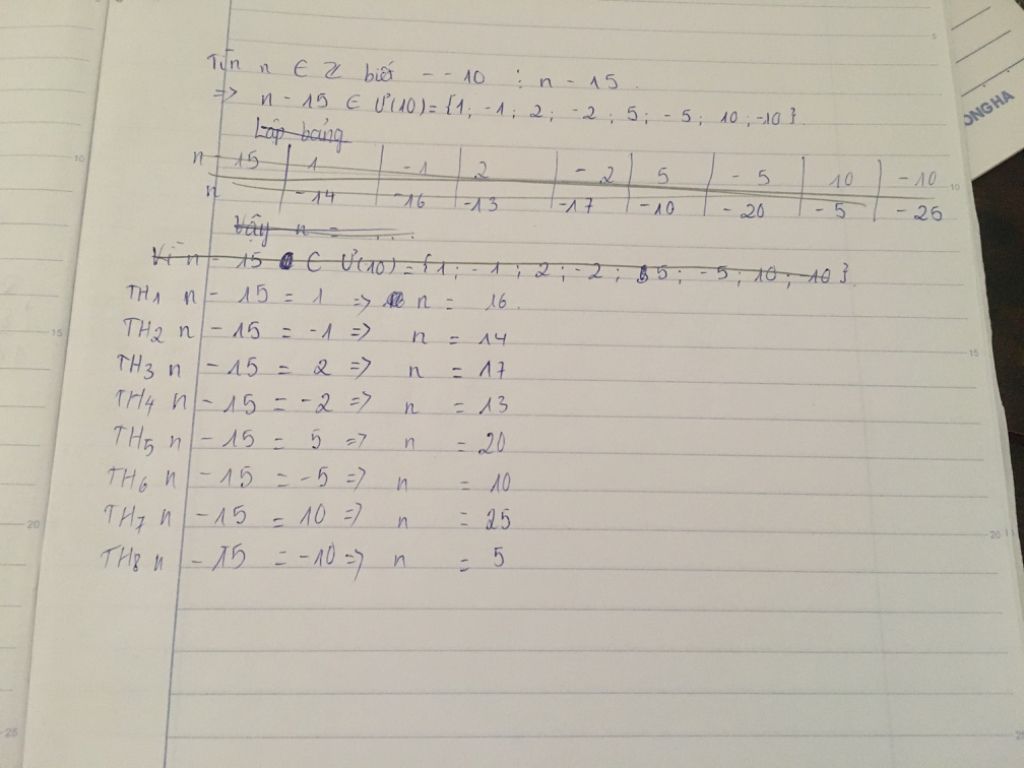 Tìm n ∈ Z biết - - 10 ⋮ n - 15.
=> n - 15 ∈ Ư(10) = {1; -1; 2; -2; 5; -5; 10; -10}.
Lập bảng
n - 15 1 -1 2 -2 5 -5 10 -10
n -14 -16 -13 -17 -10 -20 -5 -25
Vậy n = ....
Vì n - 15 ∈ Ư(10) = {1; -1; 2; -2; 5; -5; 10; -10}.
TH1 n - 15 = 1 => n = 16.
TH2 n - 15 = -1 => n = 14
TH3 n - 15 = 2 => n = 17
TH4 n - 15 = -2 => n = 13
TH5 n - 15 = 5 => n = 20
TH6 n - 15 = -5 => n = 10
TH7 n - 15 = 10 => n = 25
TH8 n - 15 = -10 => n = 5
ONG HA
5
10
15
20
25
10
15
20
25